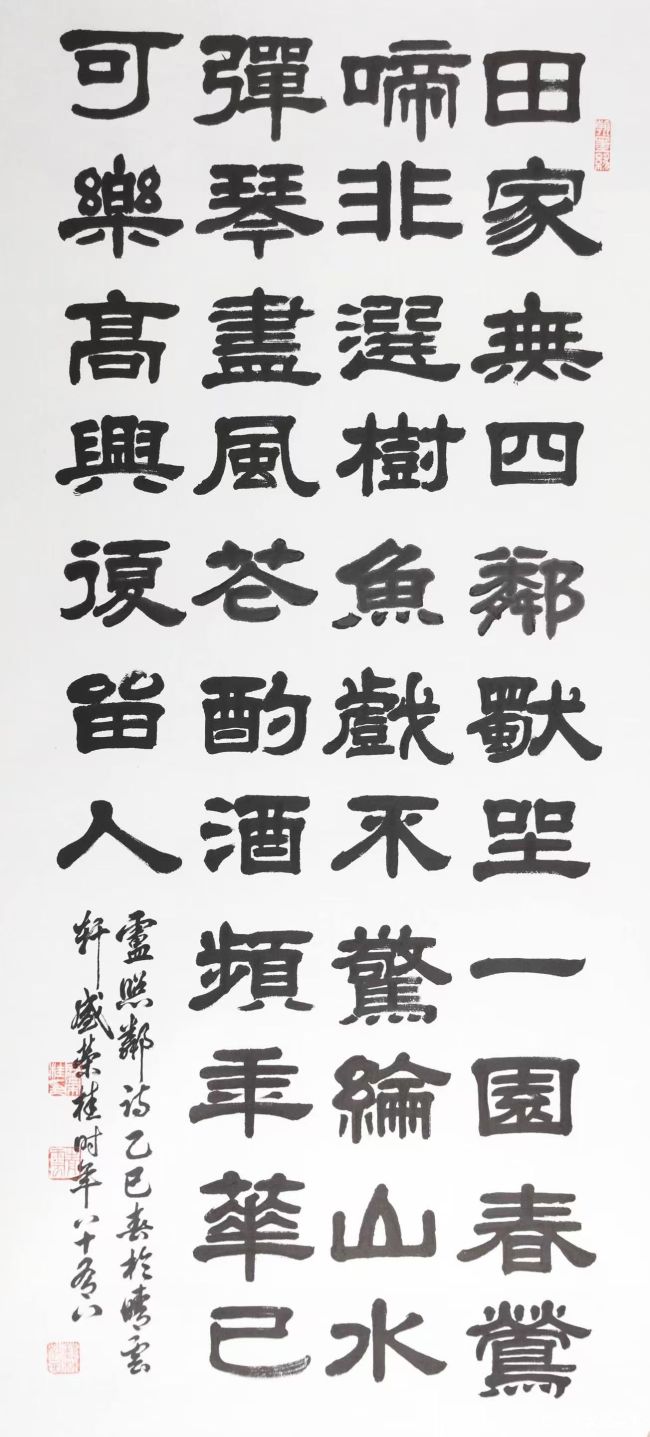 田家無四鄰獨坐一園春鶯
啼非選樹魚戲不驚綸山水
彈琴盡風花酌酒頻年華已
可樂髙興復留人
盧照鄰詩乙巳春於晴雲
軒盛榮桂时年八十有八